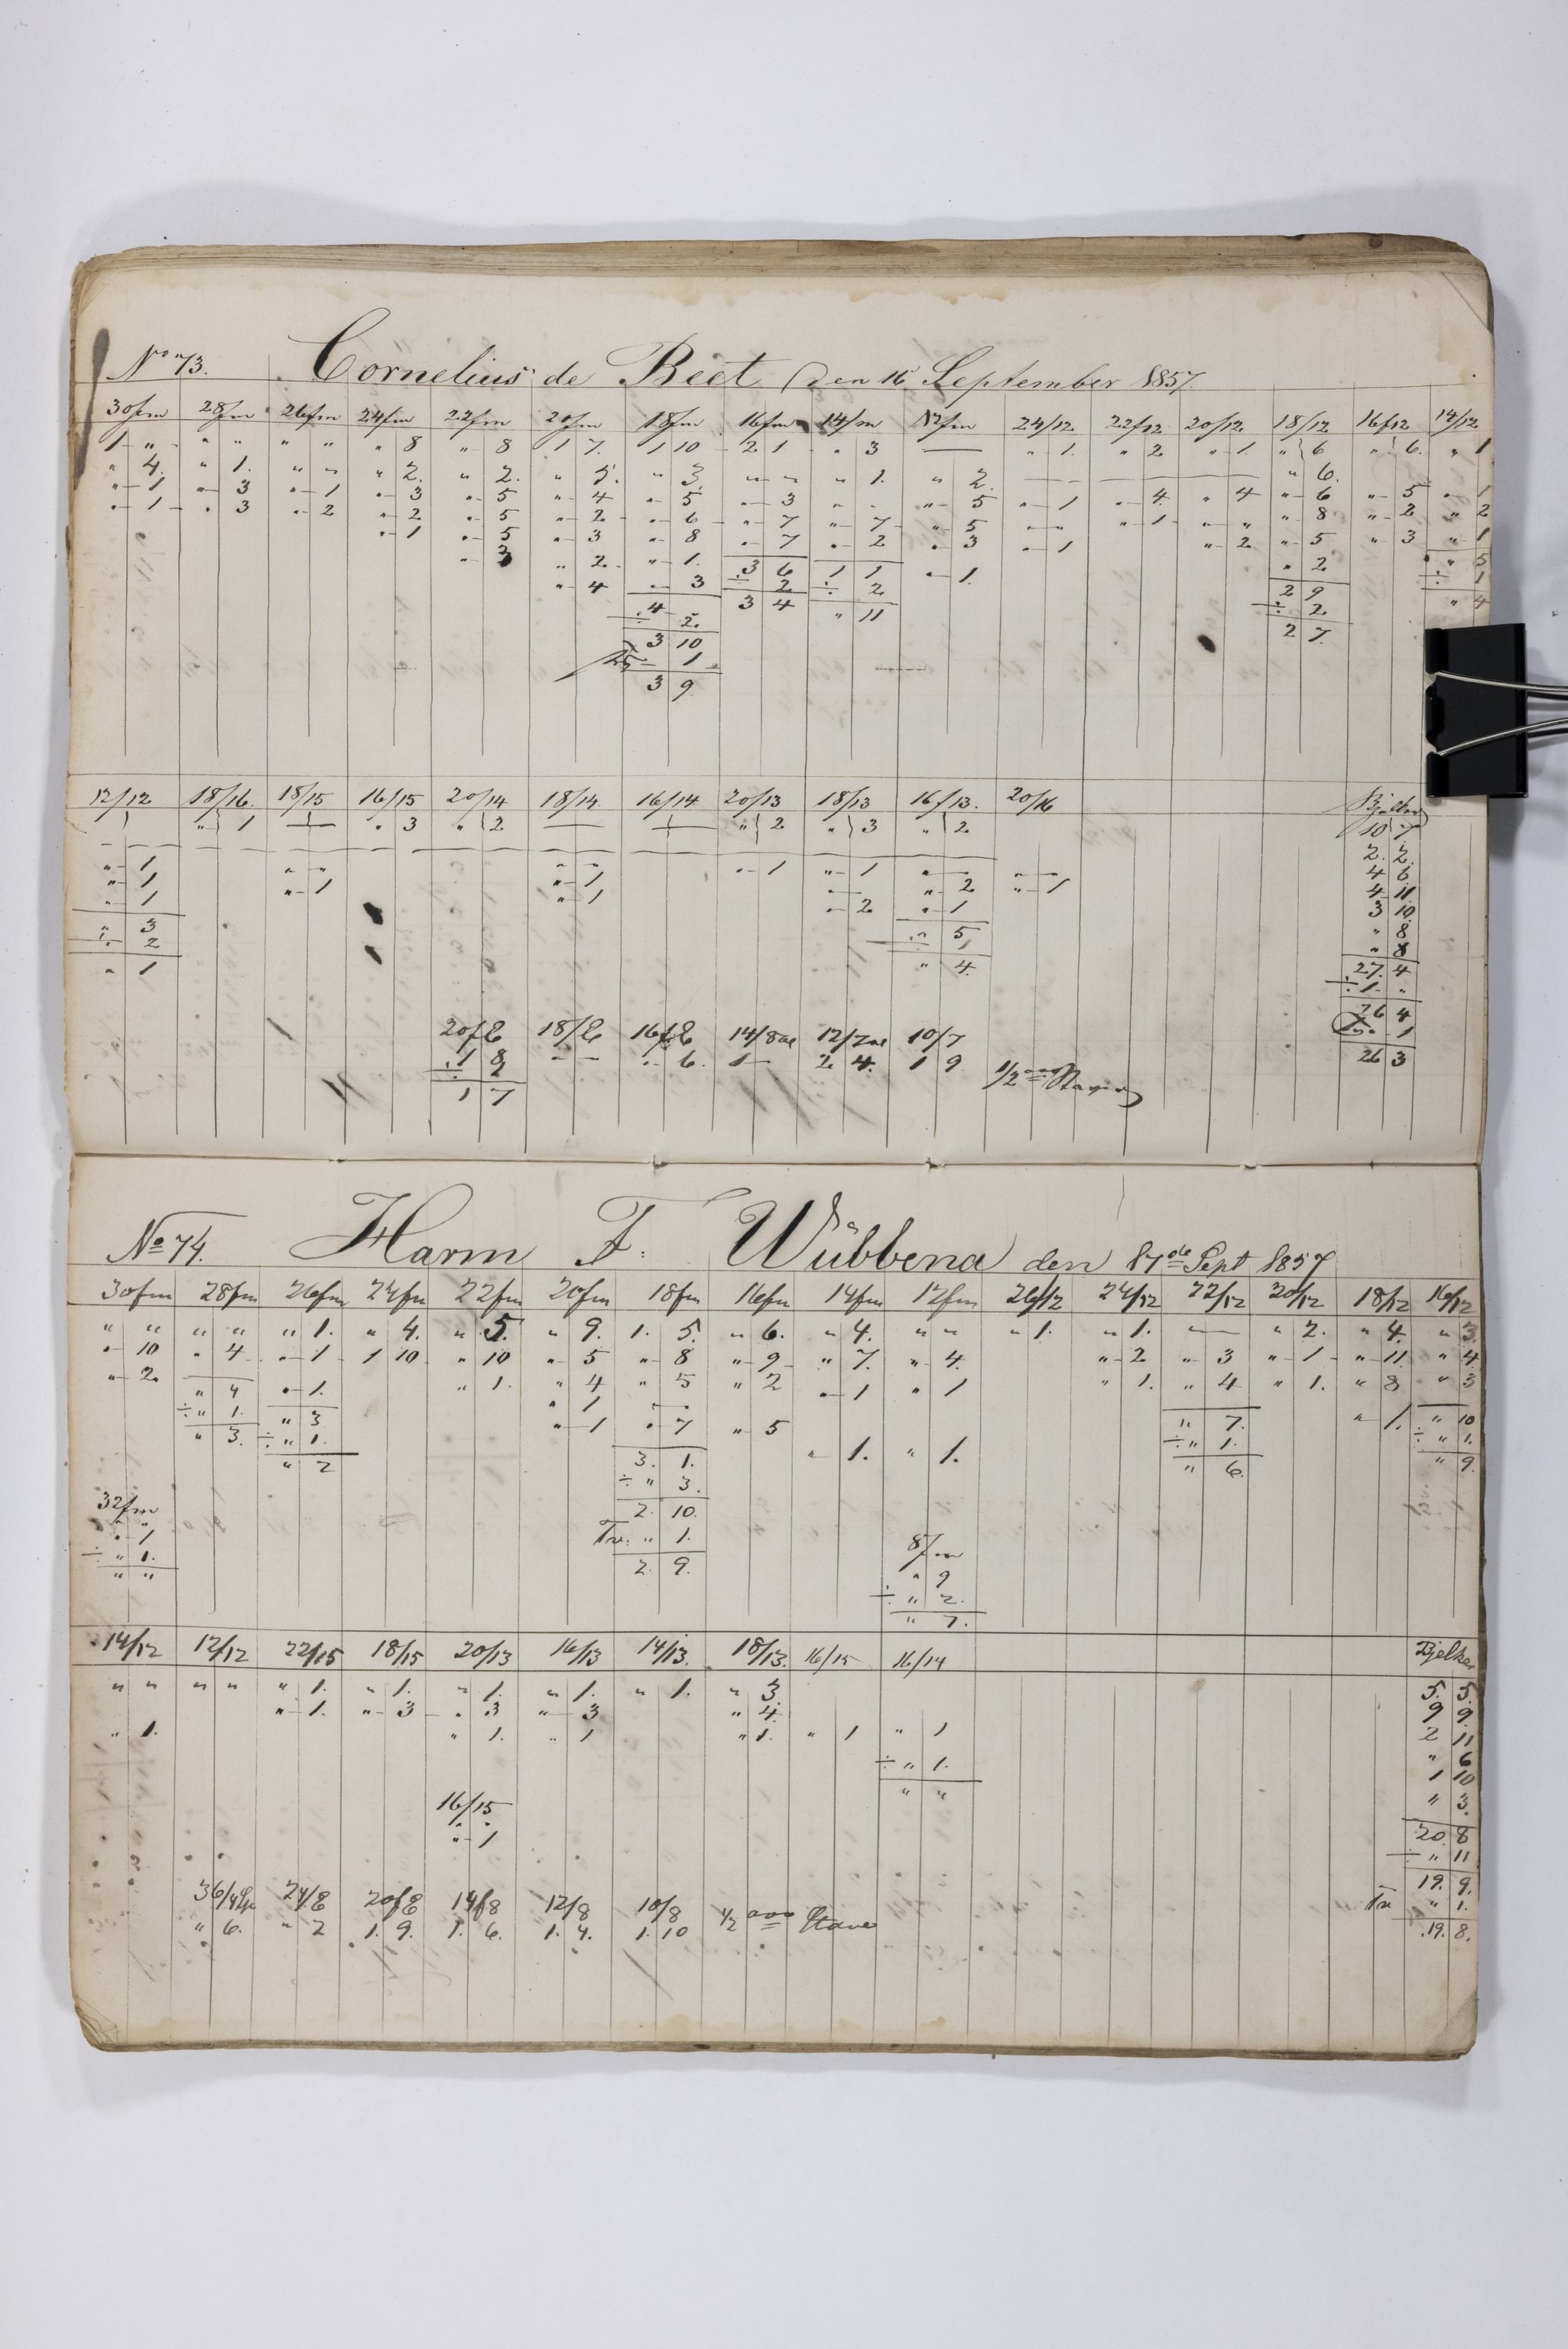 No 73. Cornelius de Beet den 16 September 1857.
30fm 28fm 26fm 24fm 22fm 20fm 18fm 16fm 14fm 12fm 24/12 22/12 20/12 18/12 16/12 14/12
1 " " " " " " 8 " 8 1 7. 1 10 2 1 " 3 — " 1. " 2 " 1. " 6 " 6. " 1
" 4. " 1. " " " 2. " 2. " 5. " 3. " " " 1. " 2. — — — " 6.
" 1 " 3 " 1 " 3 " 5 " 4 " 5 " 3 " " " 5 " 1 " 4 " 4 " 6 " 5 " 1
" 1 " 3 " 2 " 2 " 5 " 2 " 6 " 7 " 7 " 5 " " " 1 " " " 8 " 2 " 2
" 1 " 5 " 3 " 8 " 7 " 2 " 3 " 1 " 2 " 5 " 3 " 1
" 3 " 2 " 1. 3 6 1 1 " 1. " 2 " 5
" 4 " 3 ÷ 2 ÷ 2 2 9 ÷ 1
4 - 3 4 " 11 ÷ 2. " 4
÷ 2. 2 7.
3 10
÷ 1
3 9
12/12 18/16. 18/15 16/15 20/14 18/14 16/14 20/13 18/13 16/13. 20/16 Bjelker
" 1 — " 3 " 2 — — " 2 " 3 " 2. 10 7
2. 2.
" 1 " " " " " 1 " 1 " — " " 4 6
" 1 " 1 " 1 " — " 2 " 1 4 11
" 1 " 1 " 2 " 1 3 10
" 3 " 5 " 8
÷ 2 ÷ 1 " 8
" 1 " 4. 27. 4
÷ 1. "
26 4
" 1
26 3
20/8 18/8 16/8 14/8 12/7 10/7
1 8 — — " 6. 1 — 2 4. 1 9 1/2
÷ 2
1 7
No 74. Harm F. Wübbena den 17de Sept 1857
30fm 28fm 26fm 24fm 22fm 20fm 18fm 16fm 14fm 12fm 26/12 24/12 22/12 20/12 18/12 16/12
" " " " " 1. " 4. " 5. " 9. 1. 5. " 6. " 4. " " " 1. " 1. — " 2. " 4. " 3.
" 10 " 4 " 1 1 10 " 10 " 5 " 8 " 9 " 7. " 4. " 2 " 3 " 1 " 11. " 4
" 2. " 4 " 1. " 1. " 4 " 5 " 2 " 1 " 1 " 1. " 4 " 1. " 8 " 3
÷ " 1. " 3 " 1 " — " 7. " 1. " 10
" 3. ÷ " 1. " 1 " 7 " 5 ÷ " 1. ÷ " 1.
" 2 3. 1. " 1. " 1. " 6. " 9.
÷ " 3.
32fm 2. 10.
" " Tr. " 1. 8/m
" 1 2. 9. " 9
÷ " 1. ÷ " 2.
" " " 7.
14/12 12/12 22/15 18/15 20/13 16/13 14/13. 18/13. 16/15 16/14 Bjelker
" " " " " 1. " 1. " 1. " 1. " 1. " 3. 5. 5.
" 1. " 3 " 3 " 3 " 4 9 9.
" 1. " 1. " 1 " 1. " 1 " 1 2 11
÷ " 1. " 6
" " 1 10
16/15 " 3.
" " 20. 8
" 1 ÷ " 11
19. 9.
Tr " 1.
19. 8.
24/8 20/8 14/8 12/8 10/8
" 6. " 2 1. 9. 1. 6. 1. 4. 1. 10 1/2 Stave